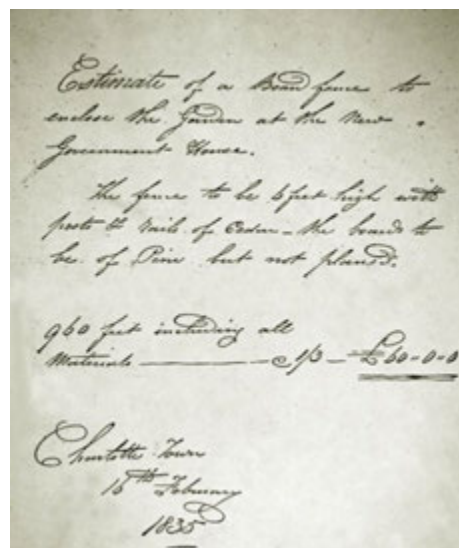 Estimate of a Board fence to
enclose the Garden at the New
Government House.
The fence to be 6 feet high with
posts & Rails of Cedar – the boards to
be of Pine but not planed.
960 feet including all
Materials ——— @ 1/3 – £60-0-0
Charlotte Town
16th February
1835